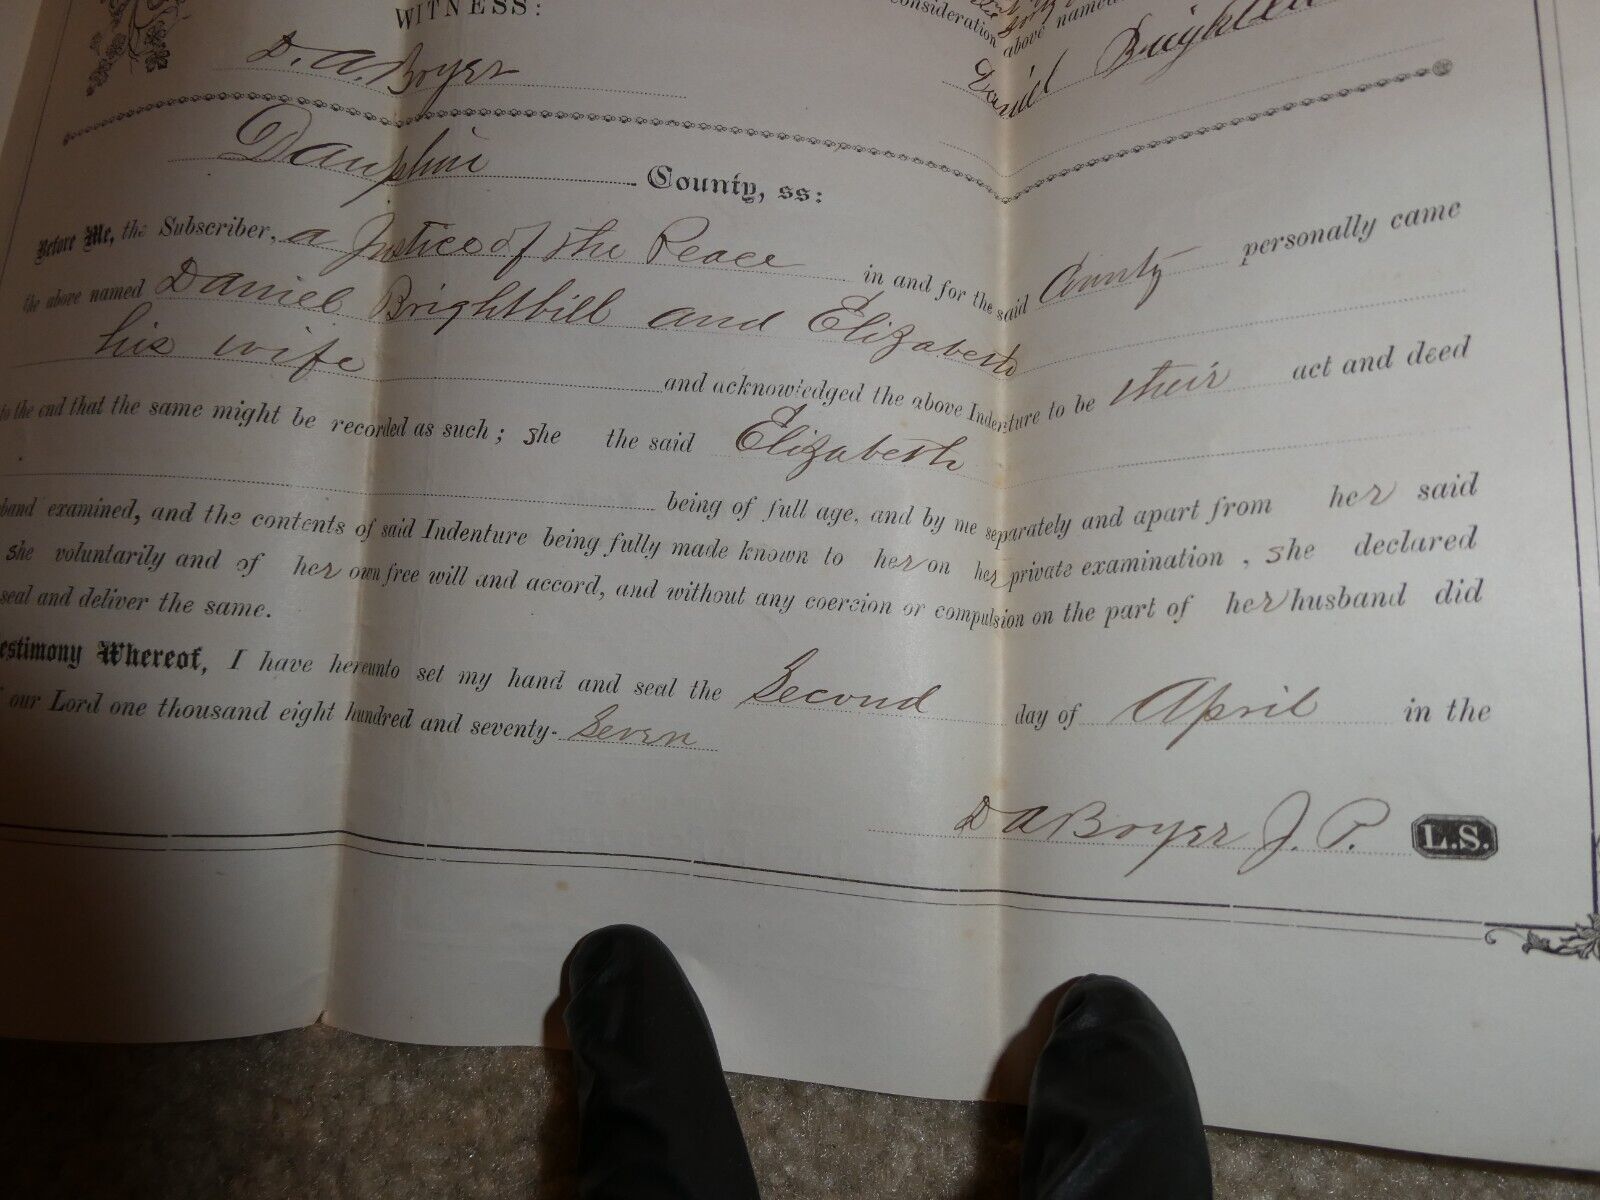 WITNESS:
consideration
above named
D. A. Boyer
Daniel Brightbill
Dauphin County, ss:
Before Me, the Subscriber, a Justice of the Peace in and for the said County personally came
the above named Daniel Brightbill and Elizabeth
his wife and acknowledged the above Indenture to be their act and deed
to the end that the same might be recorded as such; she the said Elizabeth
being of full age, and by me separately and apart from her said
band examined, and the contents of said Indenture being fully made known to her on her private examination, she declared
she voluntarily and of her own free will and accord, and without any coercion or compulsion on the part of her husband did
seal and deliver the same.
estimony Whereof, I have hereunto set my hand and seal the Second day of April in the
our Lord one thousand eight hundred and seventy-Seven
D A Boyer J. P. L.S.